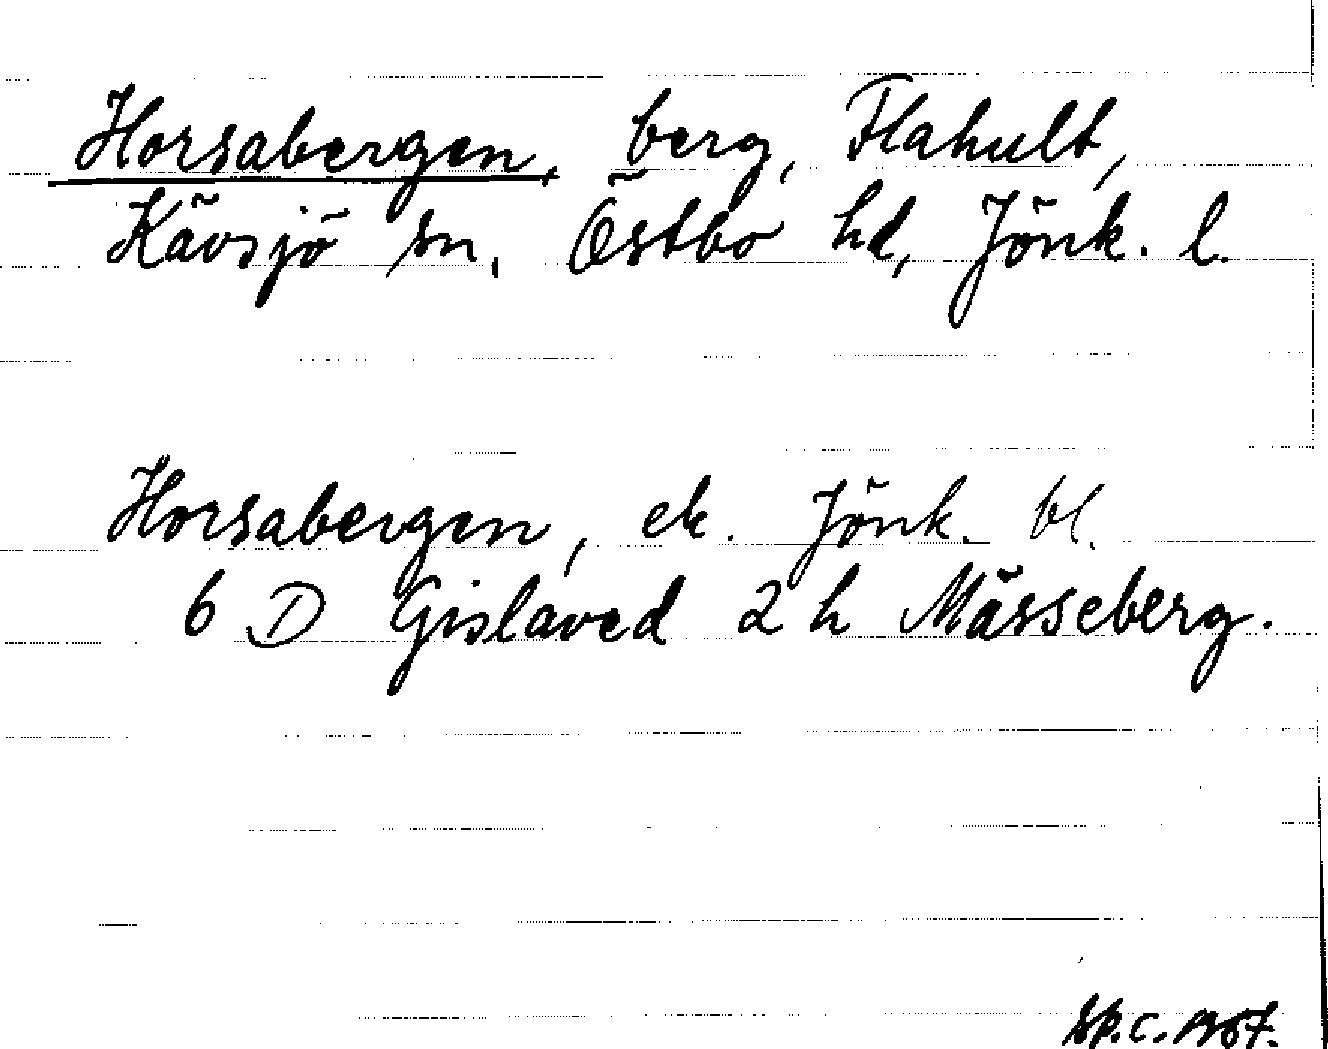 Horsabergen, berg, Flahult,
Kävsjö sn, Östbo hd, Jönk. l.
Horsabergen, ek. Jönk. bl.
6 D Gislaved 2 h Mässeberg.
Sp.C. 1967.